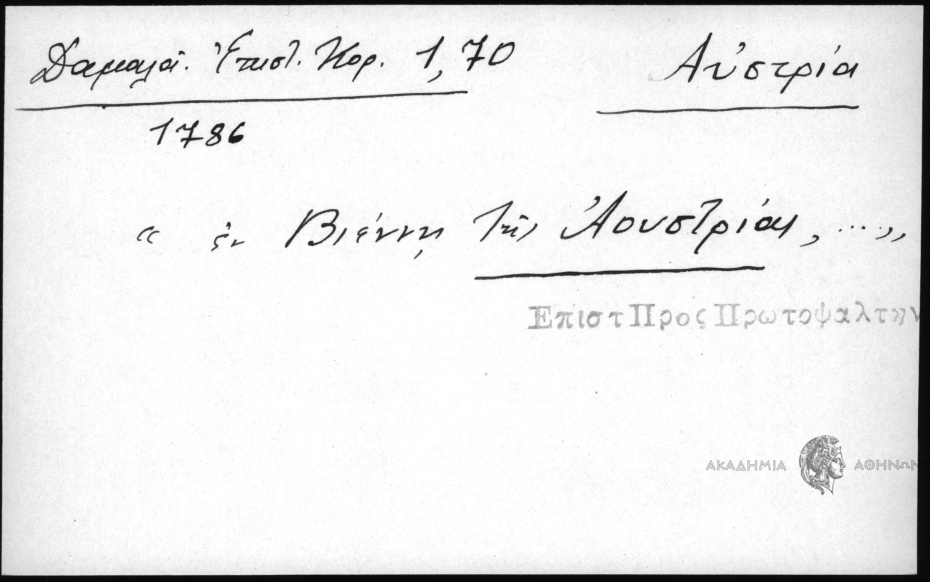 Δαμαλᾶ. Ἐπιστ. Κορ. 1,70 Αὐστρία
1786
" ἐν Βιέννῃ τῆς Ἀουστρίας, ... "
Επιστ Προς Πρωτοψαλτην
ΑΚΑΔΗΜΙΑ ΑΘΗΝΩΝ